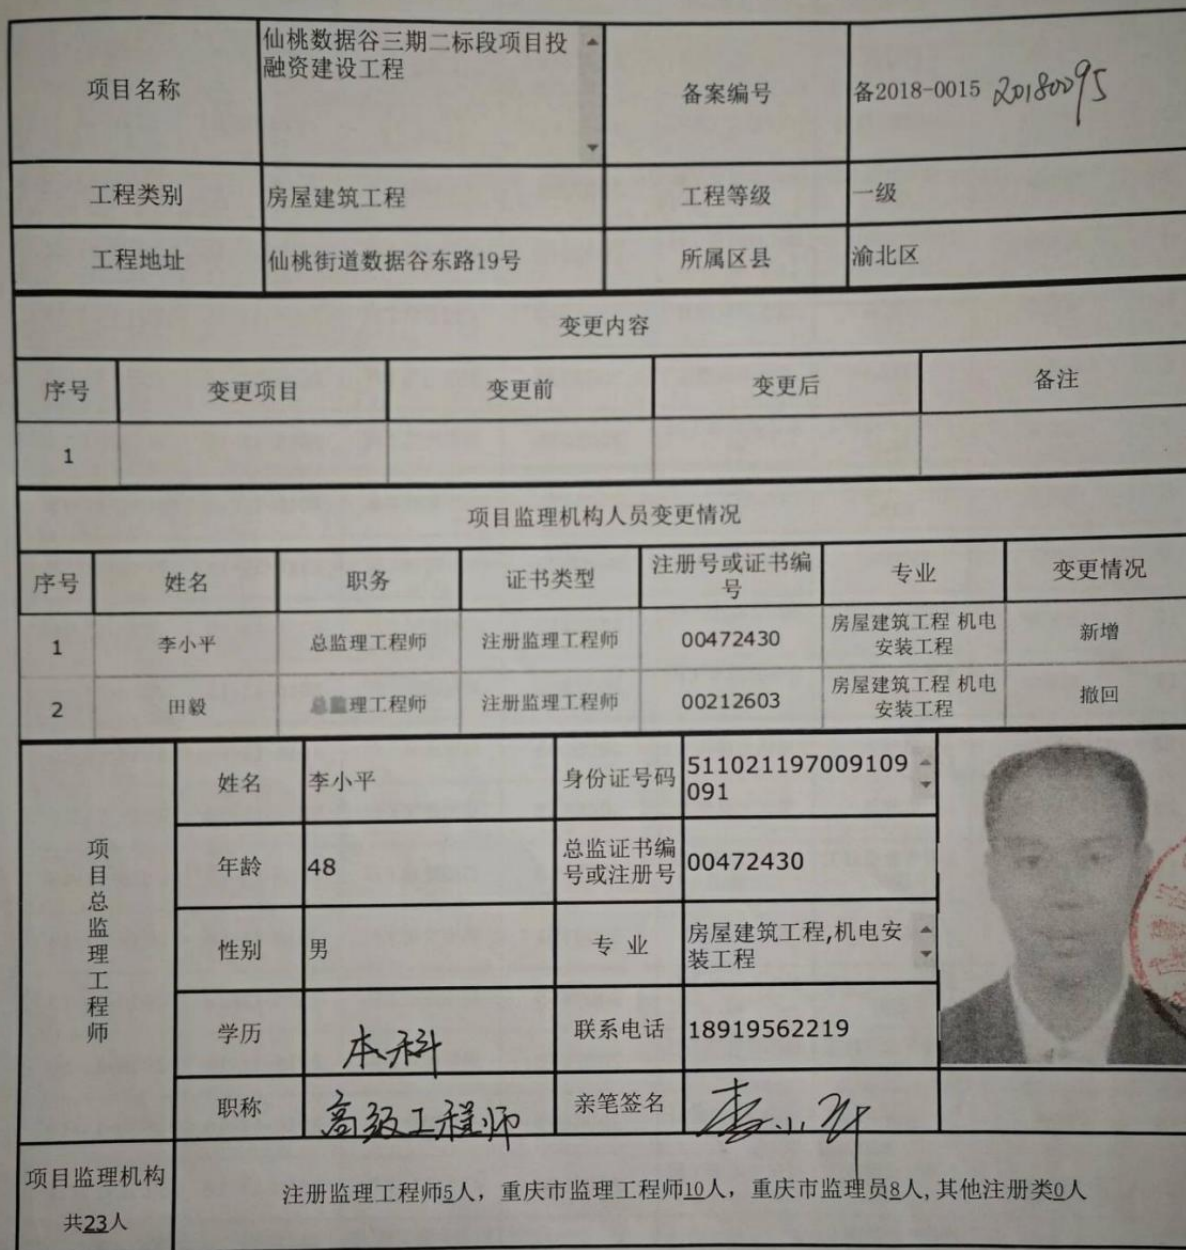 项目名称
仙桃数据谷三期二标段项目投
融资建设工程
备案编号
备2018-0015 20180095
工程类别
房屋建筑工程
工程等级
一级
工程地址
仙桃街道数据谷东路19号
所属区县
渝北区
变更内容
序号
变更项目
变更前
变更后
备注
1
项目监理机构人员变更情况
序号
姓名
职务
证书类型
注册号或证书编
号
专业
变更情况
1
李小平
总监理工程师
注册监理工程师
00472430
房屋建筑工程 机电
安装工程
新增
2
田毅
总监理工程师
注册监理工程师
00212603
房屋建筑工程 机电
安装工程
撤回
项目总监理工程师
姓名
李小平
身份证号码
511021197009109
091
年龄
48
总监证书编
号或注册号
00472430
性别
男
专 业
房屋建筑工程,机电安
装工程
学历
本科
联系电话
18919562219
职称
高级工程师
亲笔签名
李小平
项目监理机构
共23人
注册监理工程师5人，重庆市监理工程师10人，重庆市监理员8人, 其他注册类0人